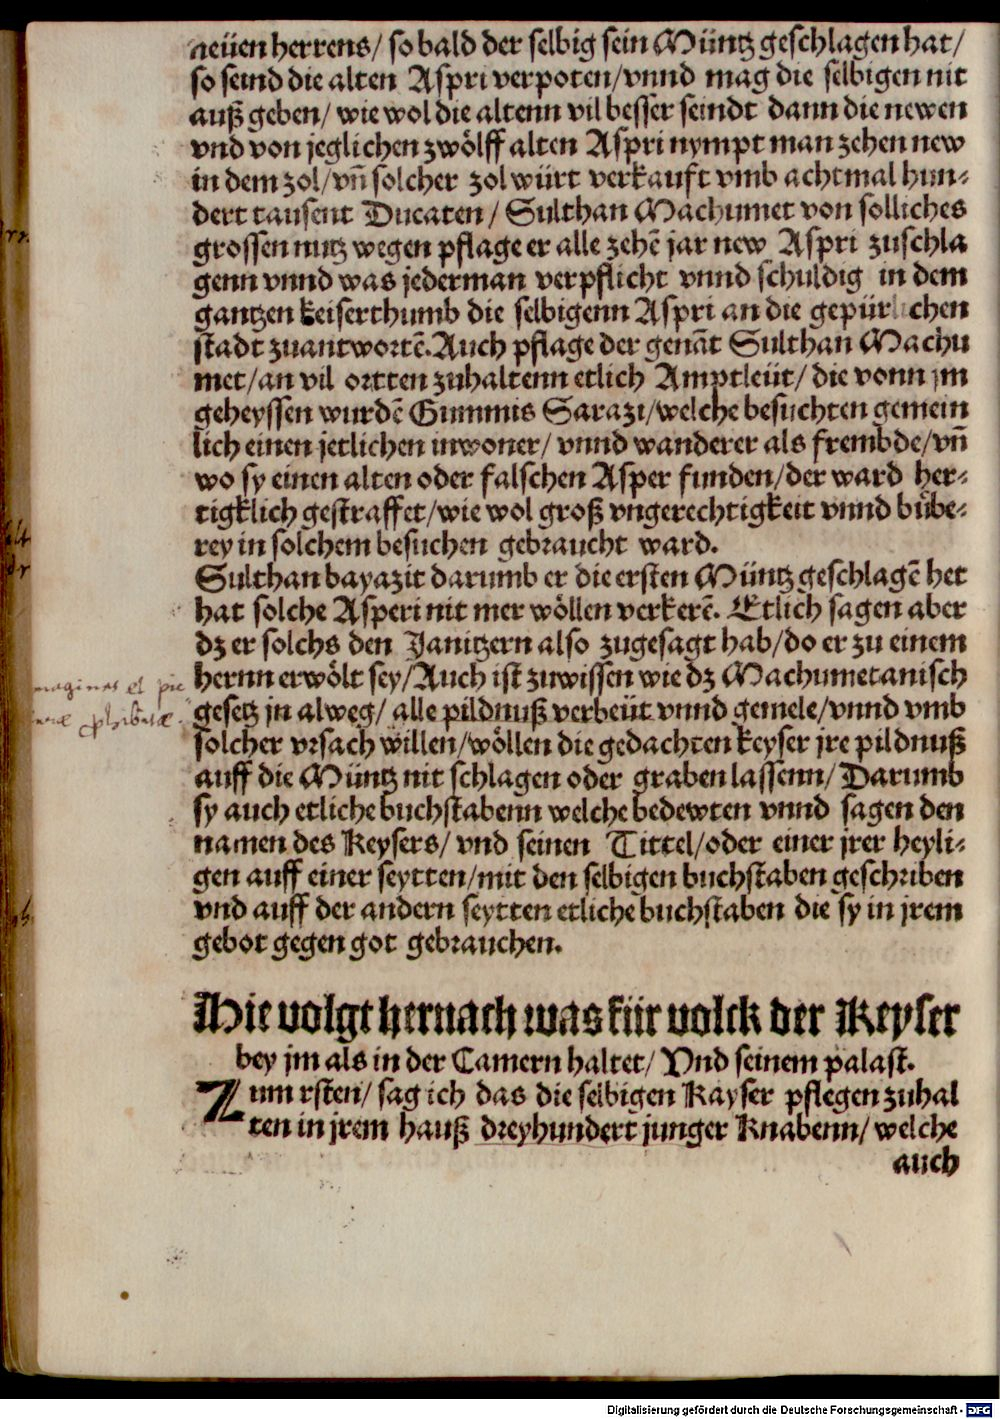 neüen herrens/ so bald der selbig sein Müntz geschlagen hat/
so seind die alten Aspri verpoten/vnnd mag die selbigen nit
auß geben/ wie wol die altenn vil besser seindt dann die newen
vnd von jeglichen zwölff alten Aspri nympt man zehen new
in dem zol/vñ solcher zol würt verkauft vmb achtmal hun⸗
dert tausent Ducaten/ Sulthan Machumet von solliches
grossen nutz wegen pflage er alle zehẽ jar new Aspri zuschla
genn vnnd was jederman verpflicht vnnd schuldig in dem
gantzen keiserthumb die selbigenn Aspri an die gepürlichen
stadt zuantwortẽ. Auch pflage der genãt Sulthan Machu
met/an vil ortten zuhaltenn etlich Amptleüt/ die vonn jm
geheyssen wurdẽ Gummis Sarazi/welche besuchten gemein
lich einen jetlichen inwoner/ vnnd wanderer als frembde/vñ
wo sy einen alten oder falschen Asper funden/der ward her⸗
tigklich gestraffet/wie wol groß vngerechtigkeit vnnd bůbe⸗
rey in solchem besuchen gebraucht ward.
Sulthan bayazit darumb er die ersten Müntz geschlagẽ het
hat solche Asperi nit mer wöllen verkerẽ. Etlich sagen aber
dz er solchs den Janitzern also zugesagt hab/do er zu einem
hernn erwölt sey/Auch ist zuwissen wie dz Machumetanisch
gesetz jn alweg/ alle pildnuß verbeüt vnnd gemele/vnnd vmb
solcher vrsach willen/wöllen die gedachten keyser jre pildnuß
auff die Müntz nit schlagen oder graben lassenn/ Darumb
sy auch etliche buchstabenn welche bedewten vnnd sagen den
namen des Keysers/ vnd seinen Tittel/oder einer jrer heyli⸗
gen auff einer seytten/mit den selbigen buchstaben geschriben
vnd auff der andern seytten etliche buchstaben die sy in jrem
gebot gegen got gebrauchen.
Hie volgt hernach was für volck der Keyser
bey jm als in der Camern haltet/ Vnd seinem palast.
Zum rsten/ sag ich das die selbigen Kayser pflegen zuhal
ten in jrem hauß dreyhundert junger Knabenn/ welche
auch
maginas et pic
Digitalisierung gefördert durch die Deutsche Forschungsgemeinschaft - DFG